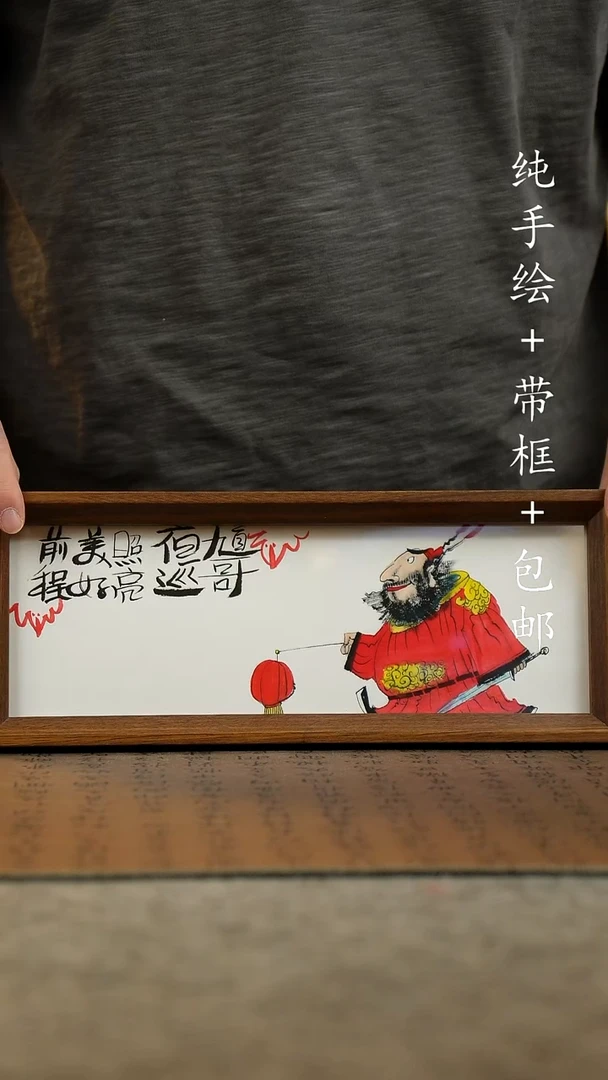 纯手绘+带框+包邮
馗哥
夜巡
照亮
美好
前程